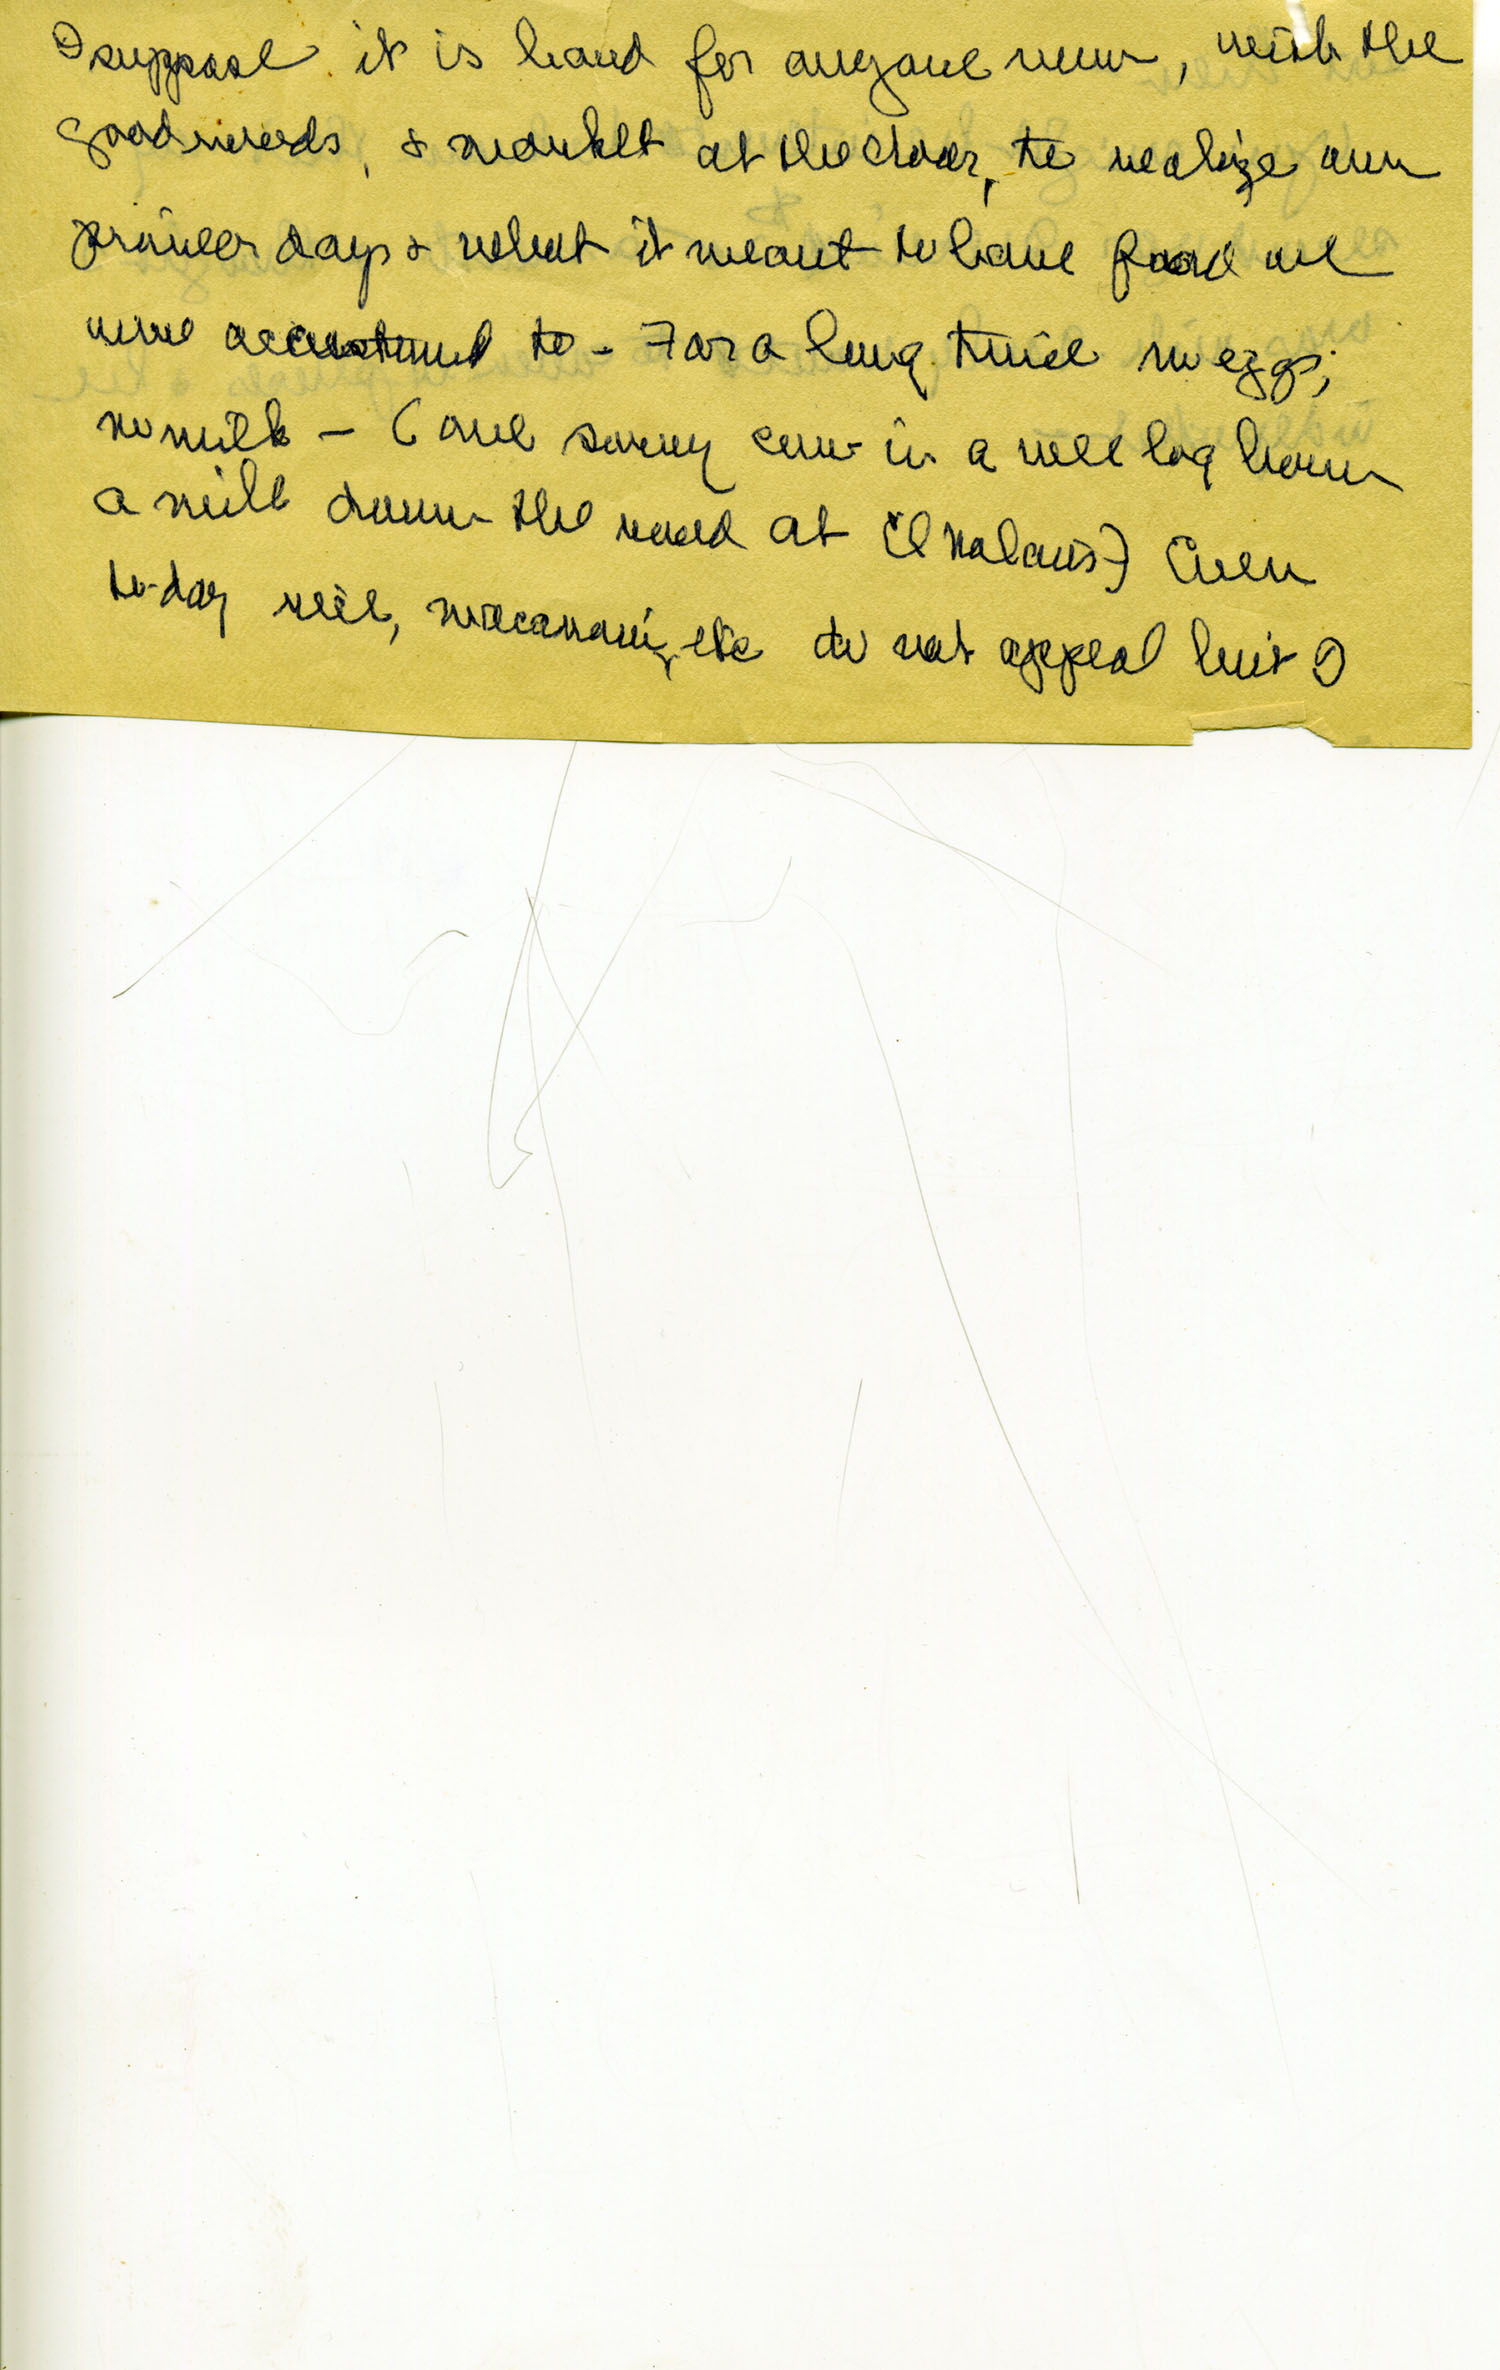 I suppose it is hard for anyone now, with the
good roads, & market at the door, to realize our
pioneer days & what it meant to have food we
were accustomed to - For a long time no eggs,
no milk - (one scrawny cow in a wee log house
a mile down the road at
to-day rice, macaroni, etc do not appeal but I